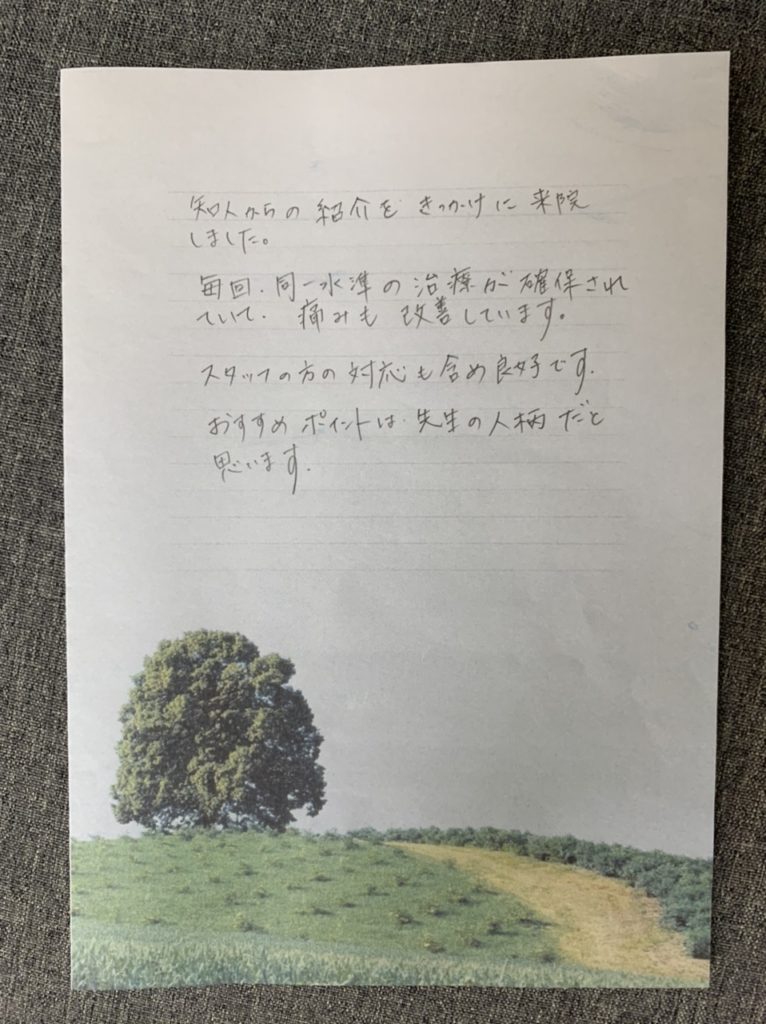 知人からの紹介をきっかけに来院
しました。
毎回、同一水準の治療が確保され
ていて、痛みも改善しています。
スタッフの方の対応も含め良好です。
おすすめポイントは、先生の人柄だと
思います。